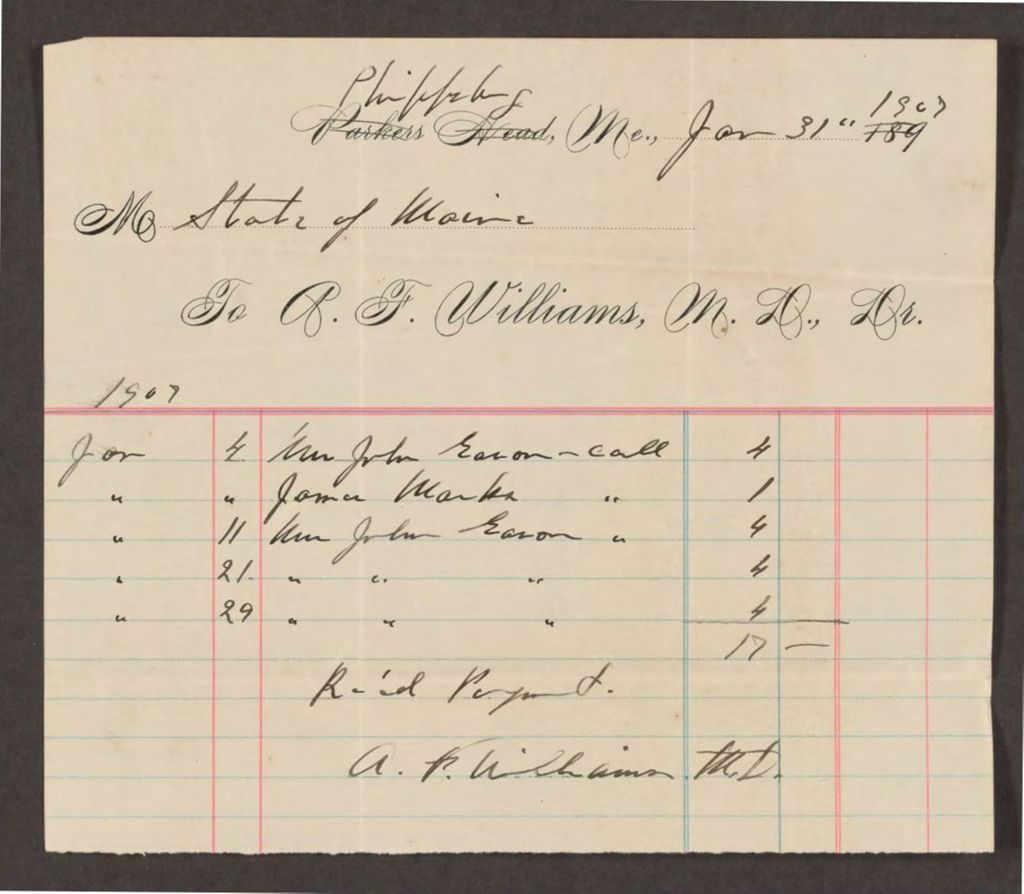 Phippsburg 1907
Parkers Head, Me., Jan 31" 189
M State of Maine
To A. F. Williams, M. D., Dr.
1907
Jan 4 Mrs John Eason - call 4
" " James Marks " 1
" 11 Mrs John Eason " 4
" 21 " " " 4
" 29 " " " 4
17 —
Rec'd Payment.
A. F. Williams M.D.